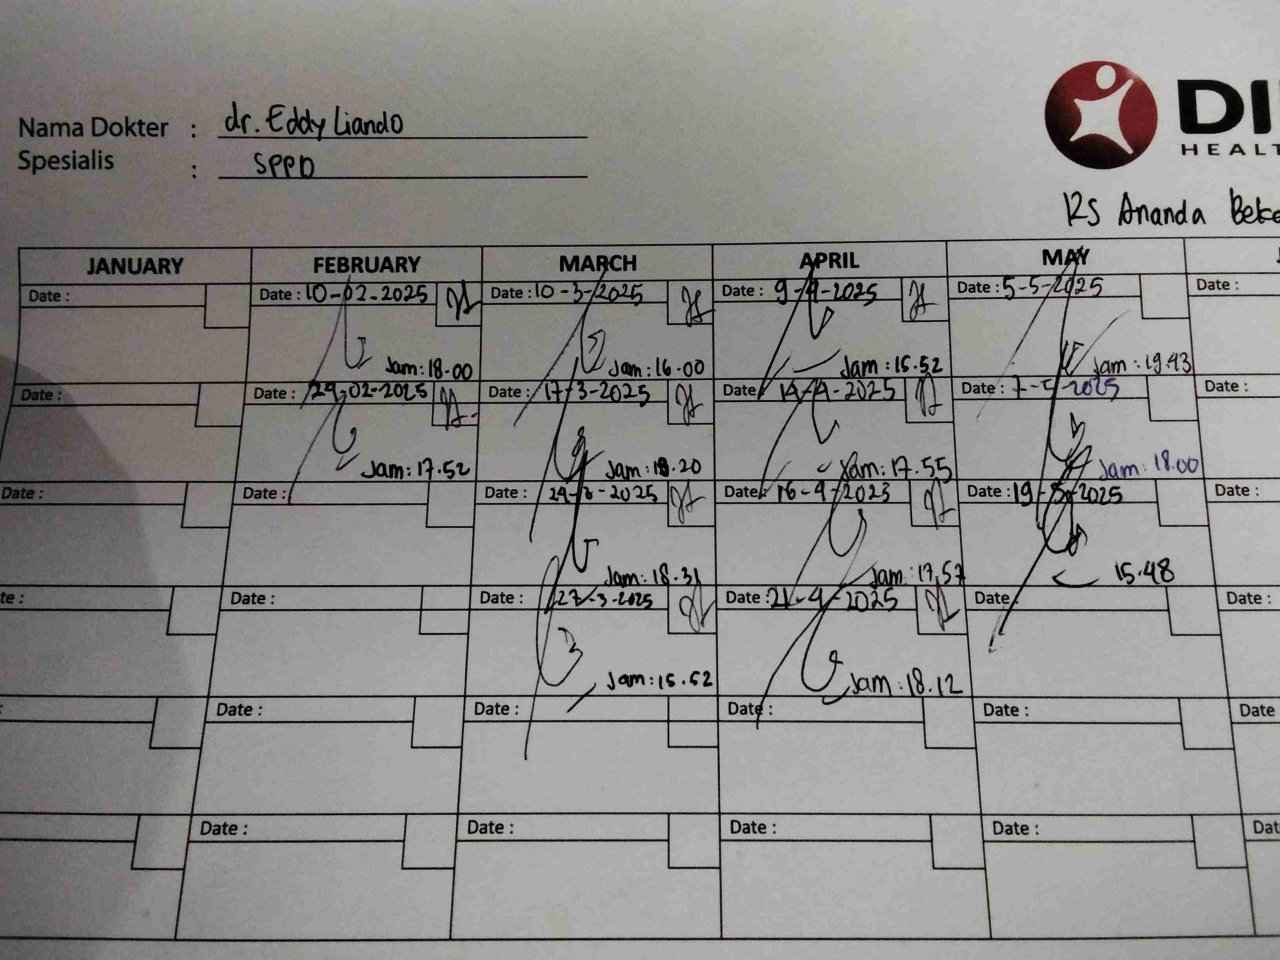 Nama Dokter : dr. Eddy Liando
Spesialis : SPPD
DI
HEALT
RS Ananda Beka
JANUARY FEBRUARY MARCH APRIL MAY
Date : Date : 10-02-2025 Date : 10-3-2025 Date : 9-4-2025 Date : 5-5-2025 Date :
Jam: 18.00 Jam: 16.00 Jam: 15.52 Jam: 19.43
Date : Date : 24-02-2025 Date : 17-3-2025 Date : 14-4-2025 Date : 7-5-2025 Date :
Jam: 17.52 Jam: 18.20 Jam: 17.55 Jam: 18.00
Date : Date : Date : 24-3-2025 Date : 16-4-2023 Date : 19-5-2025 Date :
Jam: 18.31 Jam: 17.57 15.48
te : Date : Date : 27-3-2025 Date : 21-4-2025 Date : Date :
Jam: 15.52 Jam: 18.12
: Date : Date : Date : Date : Date
Date : Date : Date : Date : Dat